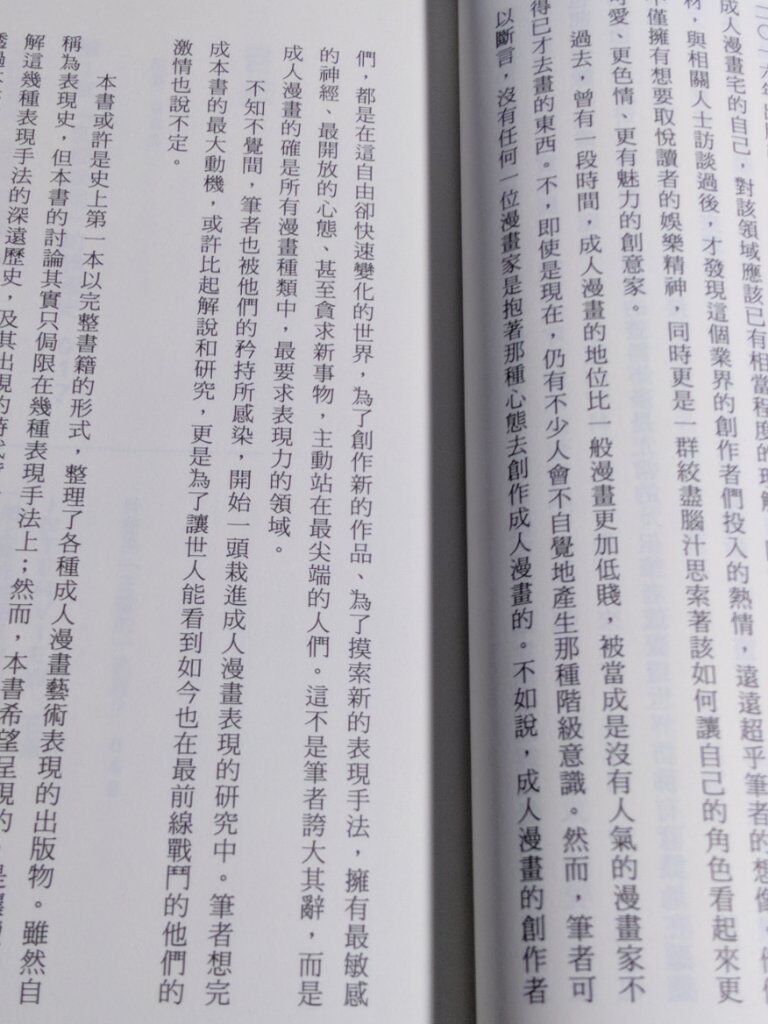 二〇一六年
成人漫畫宅的自己，對該領域應該已有相當程度的理解
材，與相關人士訪談過後，才發現這個業界的創作者們投入的熱情，遠遠超乎筆者的想像。
不僅擁有想要取悅讀者的娛樂精神，同時更是一群絞盡腦汁思索著該如何讓自己的角色看起來更
可愛、更色情、更有魅力的創意家。
過去，曾有一段時間，成人漫畫的地位比一般漫畫更加低賤，被當成是沒有人氣的漫畫家不
得已才去畫的東西。不，即使是現在，仍有不少人會不自覺地產生那種階級意識。然而，筆者可
以斷言，沒有任何一位漫畫家是抱著那種心態去創作成人漫畫的。不如說，成人漫畫的創作者
們，都是在這自由卻快速變化的世界，為了創作新的作品、為了摸索新的表現手法，擁有最敏感
的神經、最開放的心態、甚至貪求新事物，主動站在最尖端的人們。這不是筆者誇大其辭，而是
成人漫畫的確是所有漫畫種類中，最要求表現力的領域。
不知不覺間，筆者也被他們的矜持所感染，開始一頭栽進成人漫畫表現的研究中。筆者想完
成本書的最大動機，或許比起解說和研究，更是為了讓世人能看到如今也在最前線戰鬥的他們的
激情也說不定。
本書或許是史上第一本以完整書籍的形式，整理了各種成人漫畫藝術表現的出版物。雖然自
稱為表現史，但本書的討論其實只侷限在幾種表現手法上；然而，本書希望呈現的，是
解這幾種表現手法的深遠歷史，及其出現的時代背